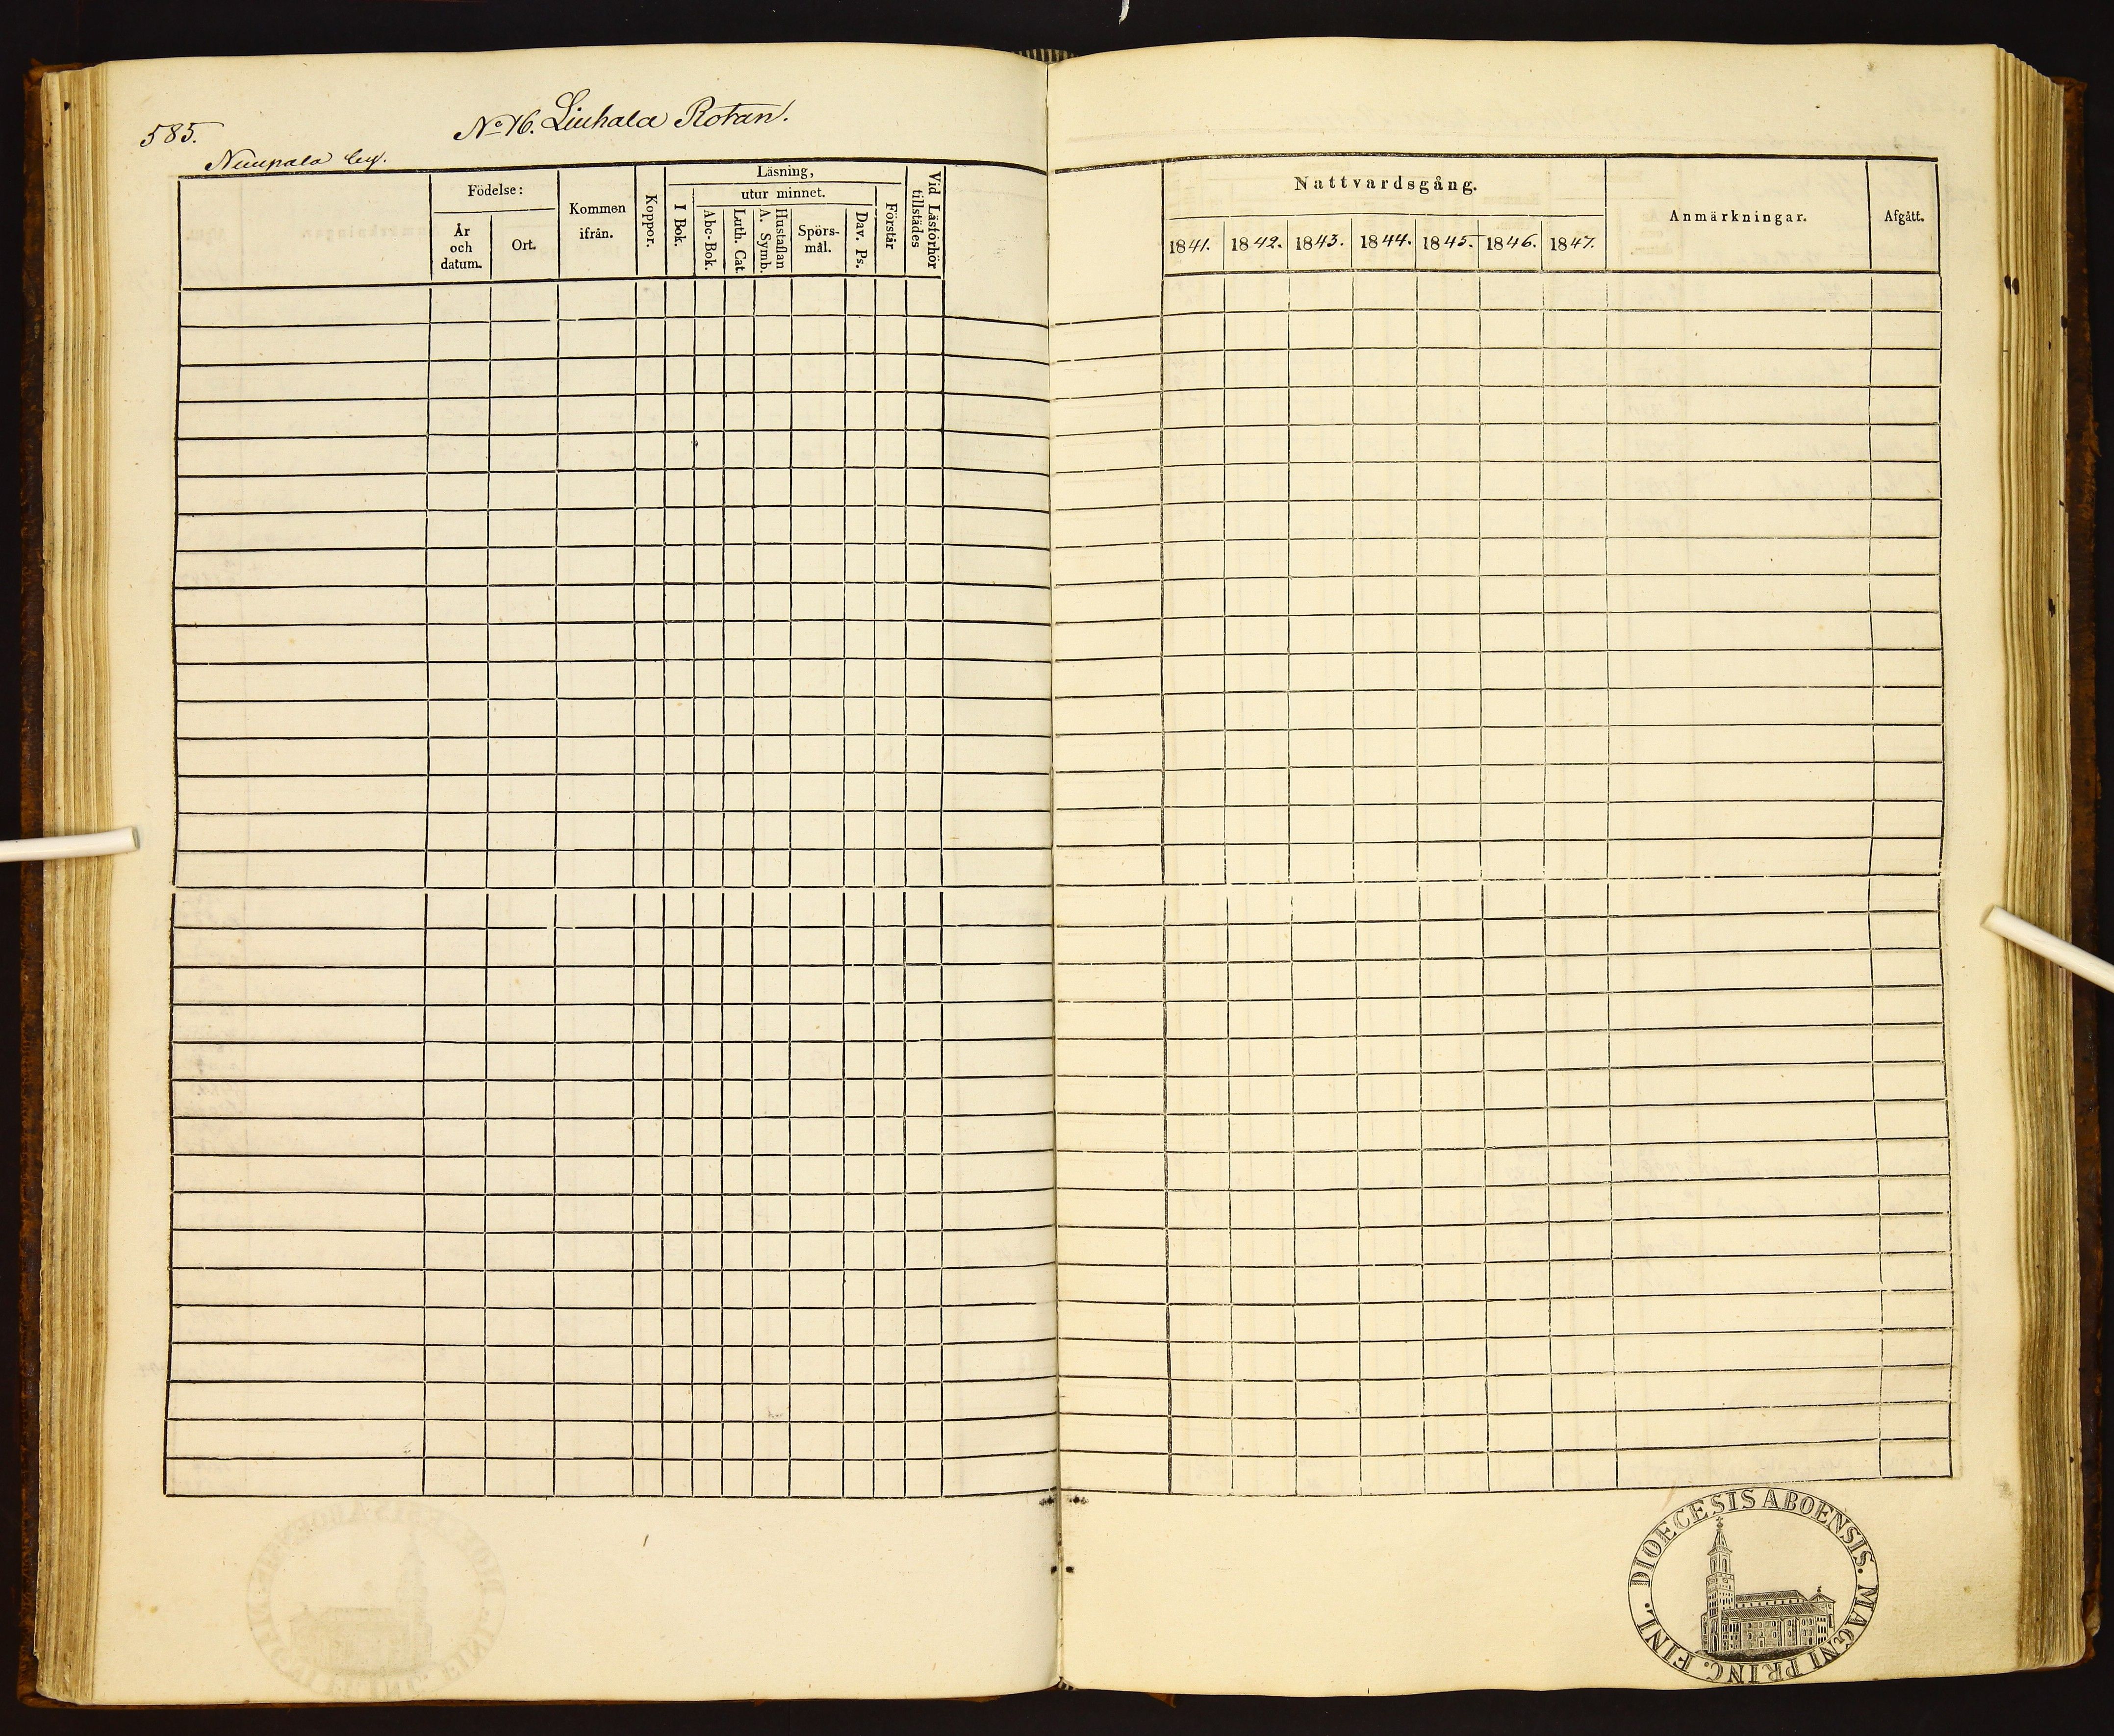 585.
No 16. Liuhala Rotan.
Nuupala by.
Födelse:
År och datum.
Ort.
Kommen ifrån.
Koppor.
Läsning,
I Bok.
utur minnet.
Abc-Bok.
Luth. Cat.
Hustaflan A. Symb.
Spörsmål.
Dav. Ps.
Förstår
Vid Läsförhör tillstädes
Nattvardsgång.
1841. 1842. 1843. 1844. 1845. 1846. 1847.
Anmärkningar.
Afgått.
DIOECESIS ABOENSIS. MAGNI PRINC. FINL.